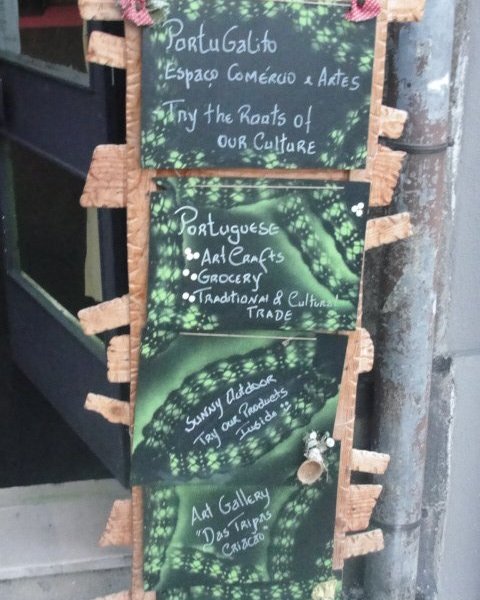 PortuGalito
Espaço Comércio & Artes
Try the Roots of
our Culture
Portuguese
• Art Crafts
• Grocery
• Traditional & Cultural
Trade
Sunny Outdoor
Try our Products
Inside
Art Gallery
"Das Tripas
Criação